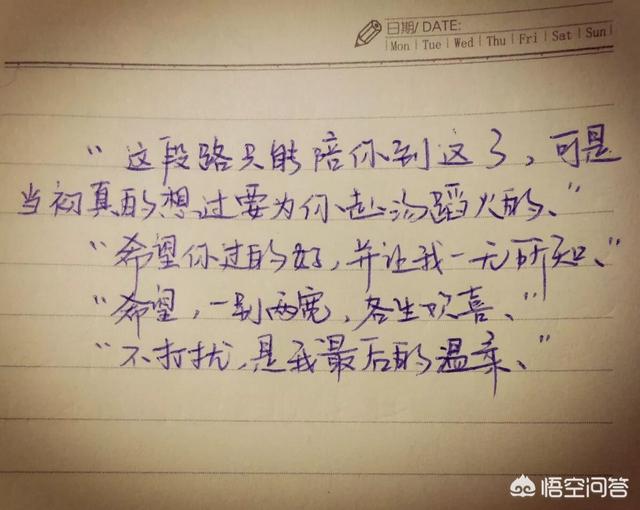 日期/ DATE:
Mon | Tue | Wed | Thu | Fri | Sat | Sun
“这段路只能陪你到这了,可是
当初真的想过要为你赴汤蹈火的、”
“希望你过的好,并让我一无所知、”
“希望,一别两宽,各生欢喜、”
“不打扰,是我最后的温柔、”
悟空问答